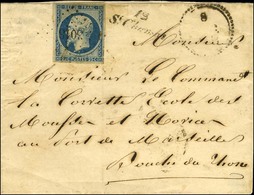 12
St Chinian
8
Monsieur
Monsieur Le Command
La Corvette Ecole des
Mousses et Novices
au Port de Marseilles
Bouches du Rhone